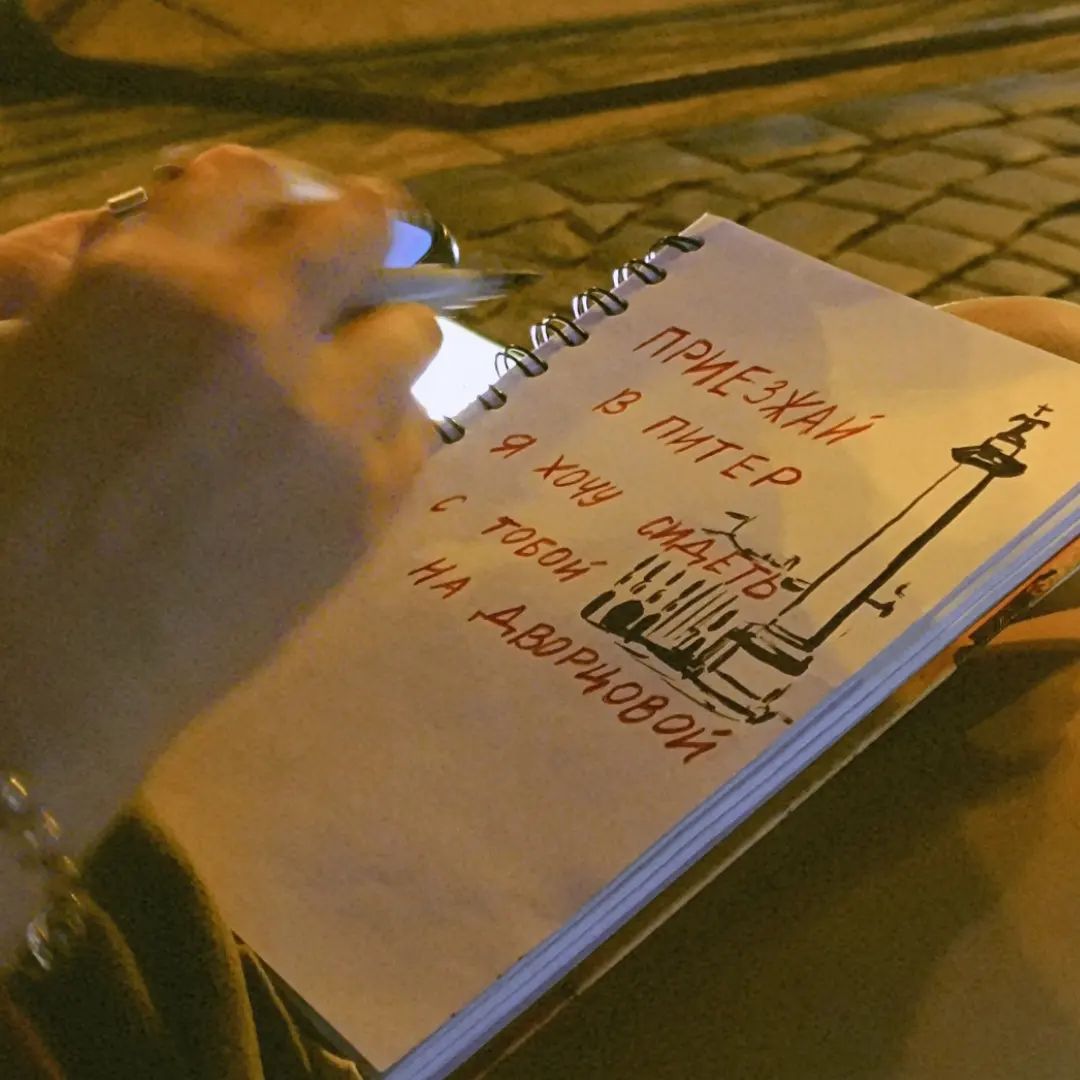 ПРИЕЗЖАЙ
В ПИТЕР
Я ХОЧУ СИДЕТЬ
С ТОБОЙ
НА ДВОРЦОВОЙ